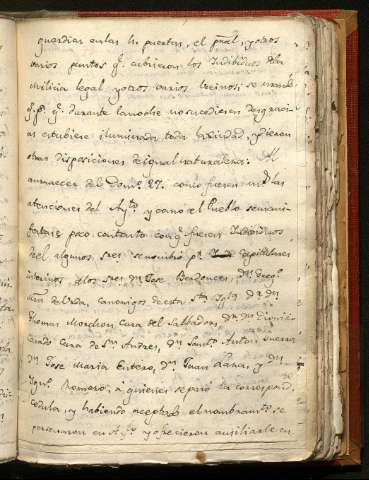 guardias en las h. puertas, el pral, y otros
varios puntos q.e cubrieron los Individuos dela
milicia legal y otros varios vecinos; se mandó
q.e durante la noche no sucediesen desgraci-
as estubiere iluminada toda la Ciudad, y dieron
otras disposiciones de igual naturaleza: Al
amanecer del Dom.o 27. como fuesen las
atenciones del Ay.to y como el Pueblo se mani-
festase poco contento con q.e fueren Individuos
de el algunos sres; se nombró p.r Capitulares
interinos a los Sres D.n Jose Berdonces, D.n
canonigos de esta S.ta Igl.a D.r D.n
Thomas Morchon, Cura del Salbador, D.n Dionisio
Cura de S.n Andres, D.n Sant.o Antonio Guerra
D.n Jose Maria Entero, D.n Juan y D.n
Ign.o Romero: a quienes se pasó la correspond.
cedula, y habiendo aceptado el nombram.to se
personaron en Ay.to y ofrecieron auxiliarle en